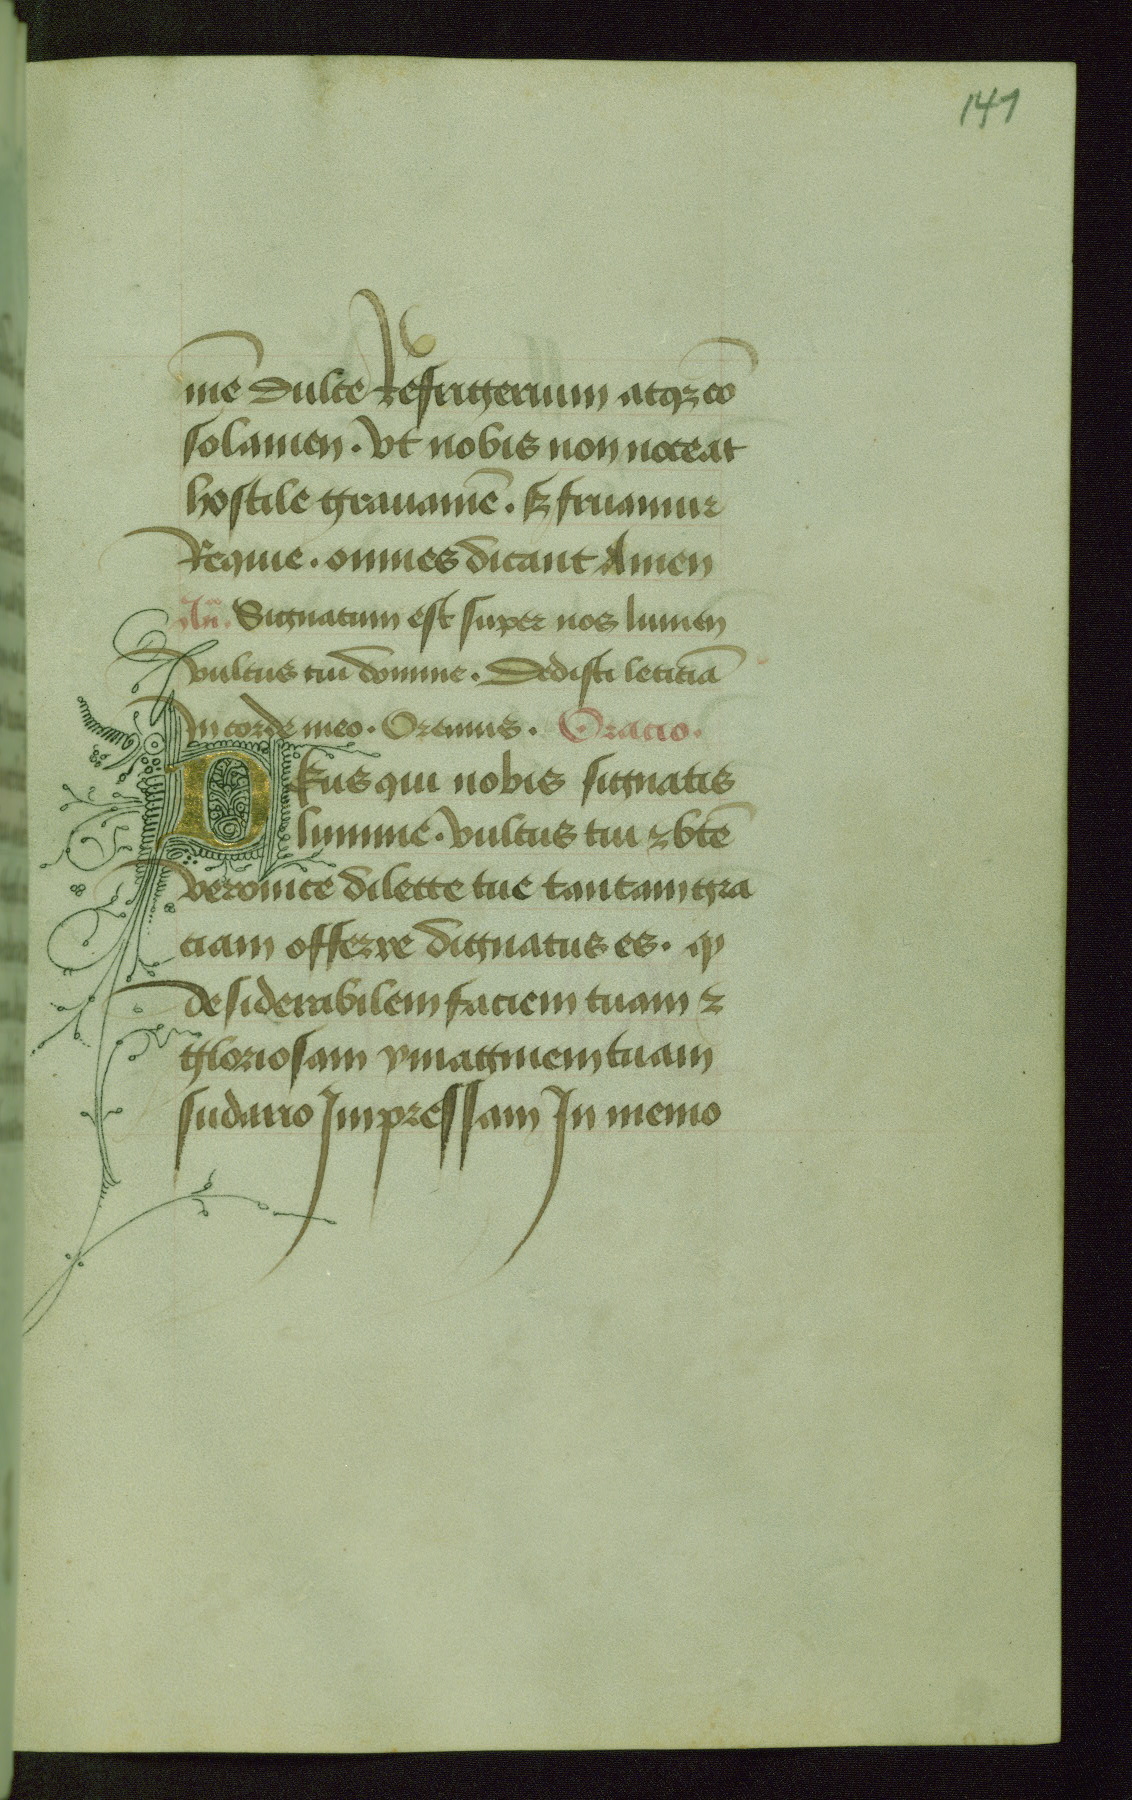 147
mē dulce Refrigerium atqꝫ cō
solamen . Vt nobis non noceat
hostile grauamē . Sꝫ fruamur
Requie . omnes dicant Amen
An̄. Signatum est super nos lumen
vultus tui domine . Dedisti leticiā
In corde meo . Oremus . Oracio .
DEus qui nobis signatis
lumine . vultus tui ⁊ btē
veronice dilecte tue tantam gra
ciam offerre dignatus es . ꝙ
desiderabilem faciem tuam ⁊
gloriosam ymaginem tuam
sudario Impressam In memo